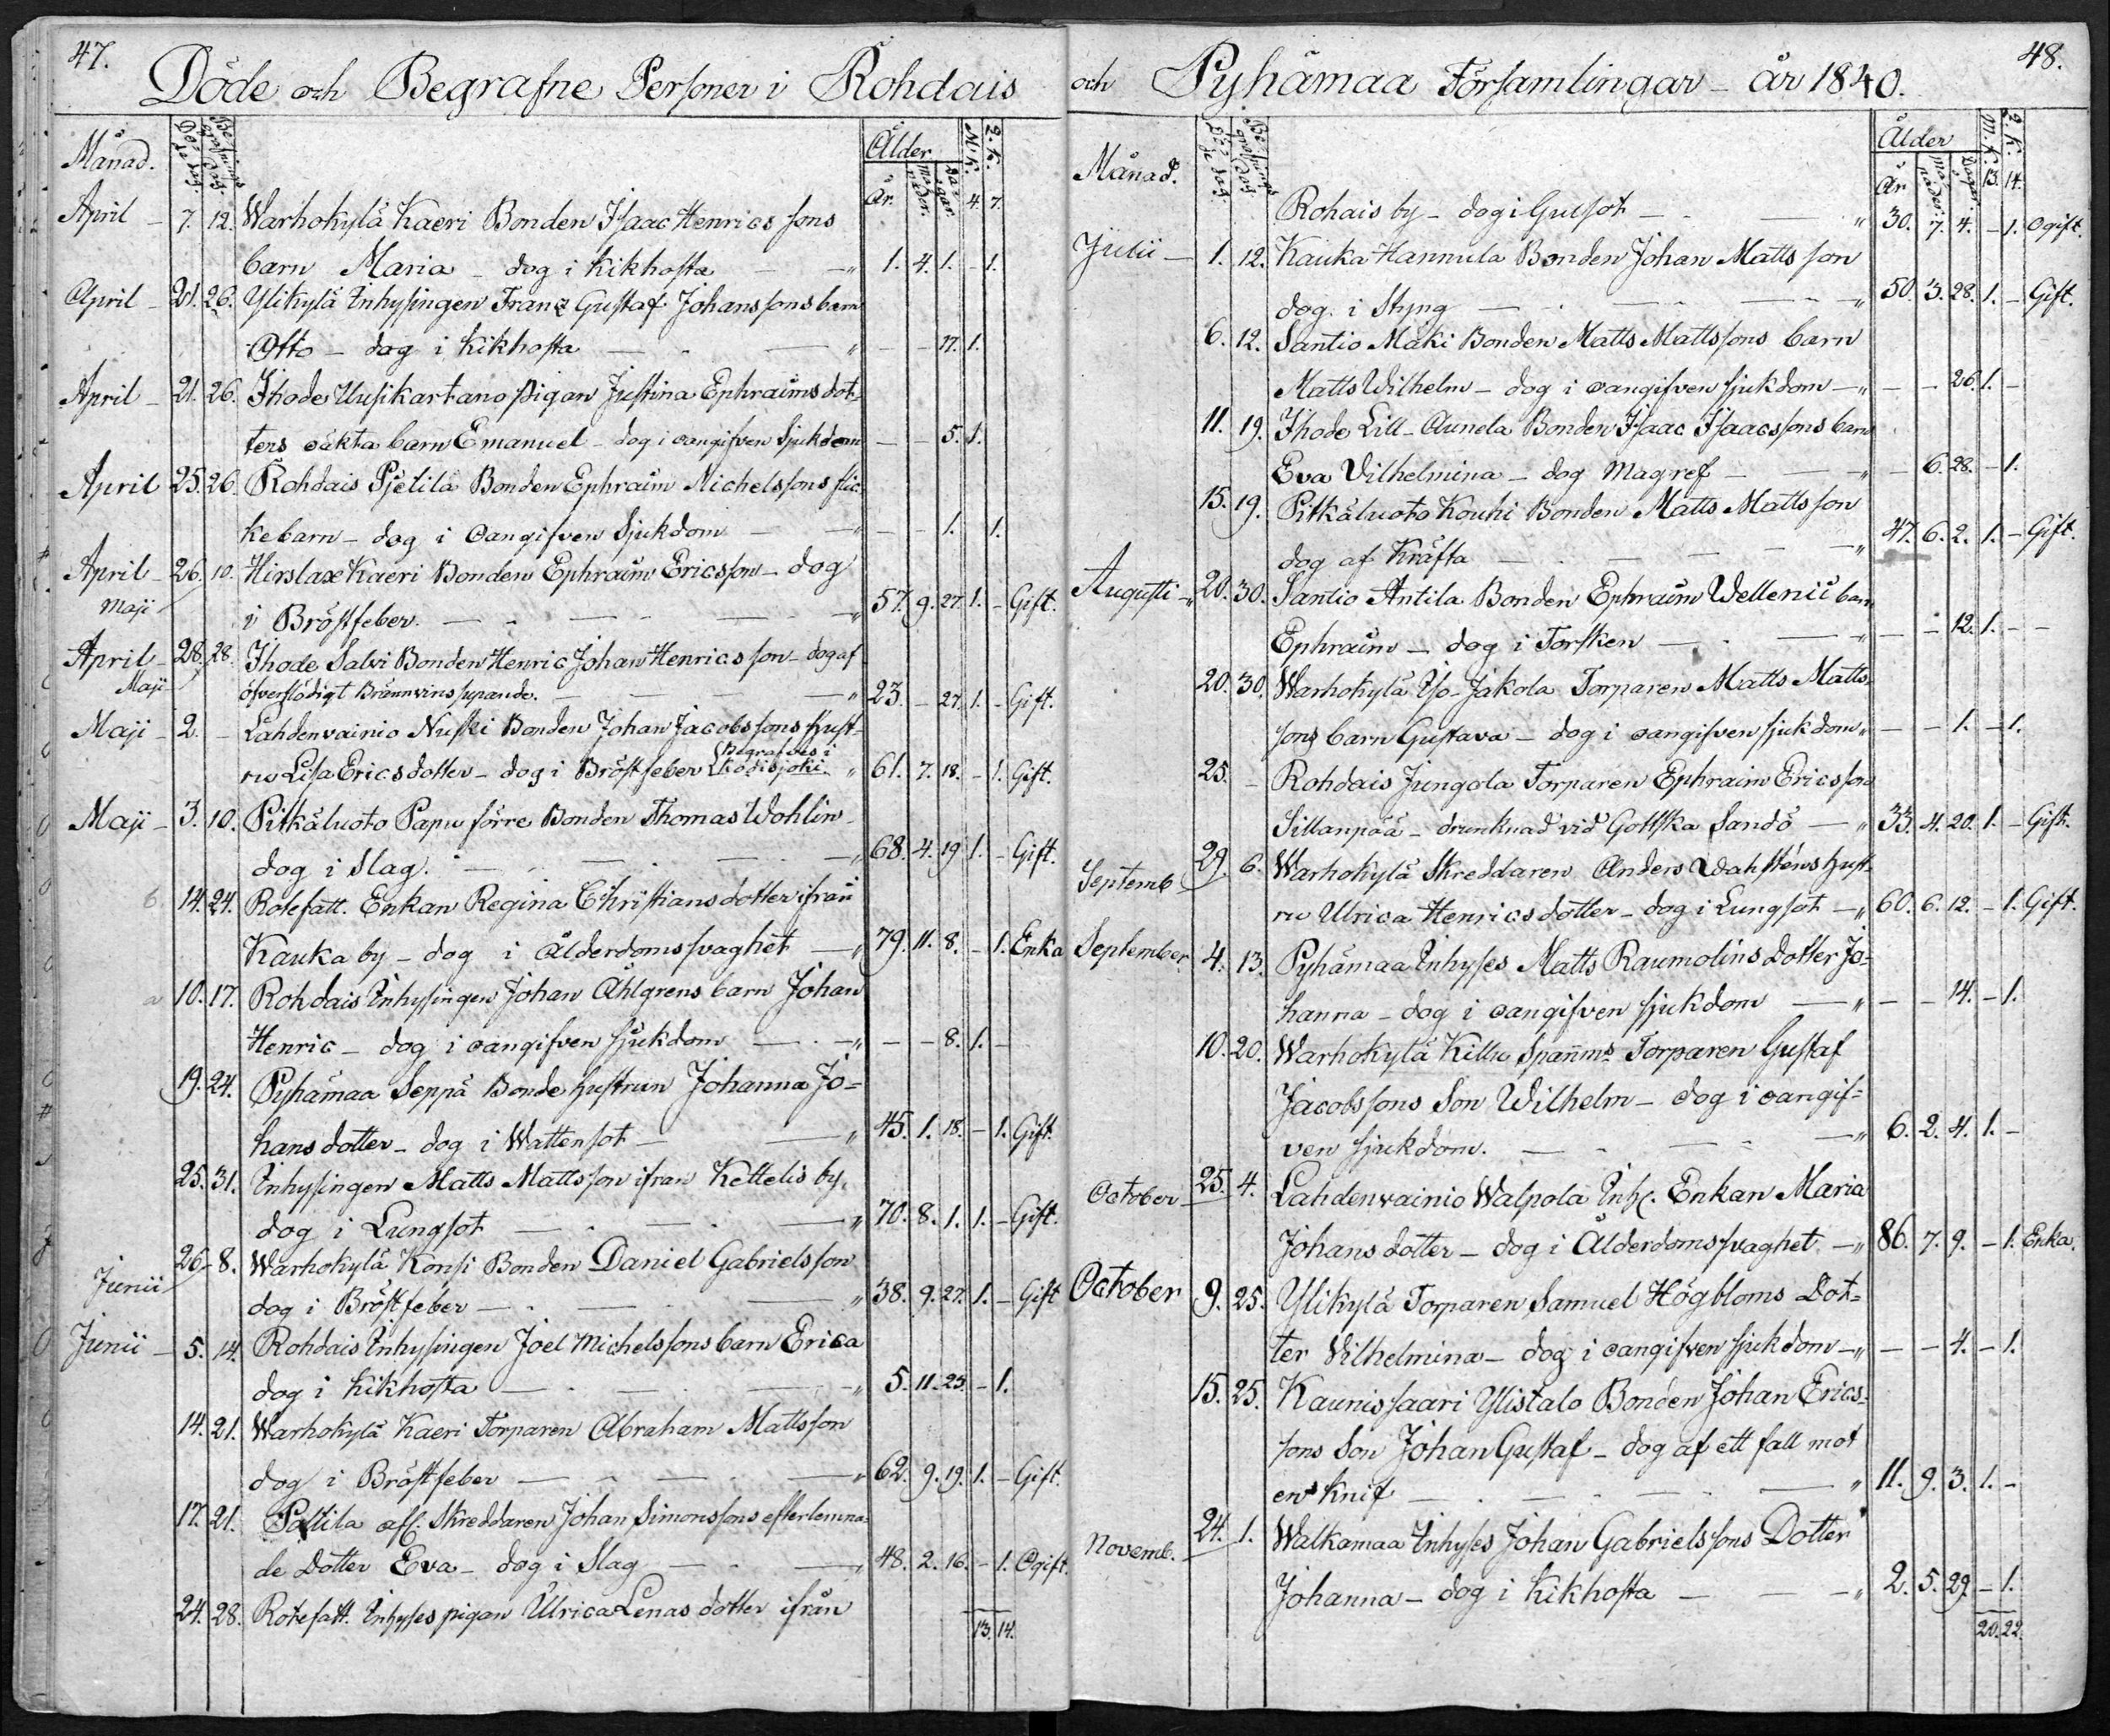 47.
Döde och Begrafne Personer i Rohdais
Månad. Dö- de dag. Be- grafnings dag. Ålder År. Må- nader. Da- gar. M.K. 4. Q.K. 7.
April 7. 12. Warhokylä Kaeri Bonden Isaac Henrics sons
barn Maria - dog i kikhosta 1. 4. 1. - 1.
April 21. 26. Ylikylä Inhysingen Franz Gustaf Johanssons barn
Otto - dog i kikhosta - - 17. 1.
April 21. 26. Ihode Uusikartano pigan Justina Ephraimsdot-
ters oäkta barn Emanuel - dog i oangifven Sjukdom - - 5. 1.
April 25. 26. Rohdais Pjetilä Bonden Ephraim Michelssons flic-
kebarn - dog i oangifven Sjukdom - - 1. 1.
April 26. 10. Hirslax Kaeri Bonden Ephraim Ericsson - dog
Maji i Bröstfeber. 57. 9. 27. 1. - Gift.
April 28. 28. Ihode Salvi Bonden Henric Johan Henricsson - dog af
Maji öfverflödigt Brännvins supande. 23. - 27. 1. - Gift.
Maji 2. - Lahdenvainio Nuski Bonden Johan Jacobssons Hust-
Begrafves i
ru Lisa Ericsdotter - dog i Bröstfeber Kodisjoki 61. 7. 18. - 1. Gift.
Maji 3. 10. Pitkäluoto Papu förre Bonden Thomas Wohlin
dog i Slag. 68. 4. 19. 1. - Gift.
b 14. 24. Rotefatt. Enkan Regina Christiansdotter ifrån
Kauka by - dog i Ålderdomssvaghet 79. 11. 8. - 1. Enka
a 10. 17. Rohdais Inhysingen Johan Åhlgrens barn Johan
Henric - dog i oangifven sjukdom - - 8. 1. -
19. 24. Pyhämaa Seppä Bonde hustrun Johanna Jo-
hansdotter - dog i Wattensot 45. 1. 18. - 1. Gift.
25. 31. Inhysingen Matts Mattsson ifrån Kettelis by,
dog i Lungsot 70. 8. 1. 1. - Gift.
26. 8. Warhokylä Konsi Bonden Daniel Gabrielsson
Junii dog i Bröstfeber 38. 9. 27. 1. - Gift
Junii 5. 14. Rohdais Inhysingen Joel Michelssons barn Erica
dog i kikhosta 5. 11. 25. - 1.
14. 21. Warhokylä Kaeri Torparen Abraham Mattsson
dog i Bröstfeber 62. 9. 19. 1. - Gift.
17. 21. Pattila afl. Skreddaren Johan Simonssons efterlemna-
de Dotter Eva - dog i Slag 48. 2. 16. - 1. Ogift.
24. 28. Rotefatt. Inhyses pigan Ulrica Lenas dotter ifrån
13. 14.
48.
och Pyhämaa Församlingar - år 1840.
Månad. Dö- de dag. Be- grafnings dag. Ålder År Må- nader. Dagar. M.K. 13. Q.K. 14.
Rohais by - dog i Gulsot 30. 7. 4. - 1. Ogift.
Julii 1. 12. Kauka Hannula Bonden Johan Mattsson
dog i Styng 50. 3. 28. 1. - Gift.
6. 12. Santio Mäki Bonden Matts Mattssons barn
Matts Wilhelm - dog i oangifven sjukdom - - 26. 1. -
11. 19. Ihode Lill-Aunela Bonden Isaac Isaacssons barn
Eva Vilhelmina - dog Magref - 6. 28. - 1.
15. 19. Pitkäluoto Kouhi Bonden Matts Mattsson
dog af Kräfta 47. 6. 2. 1. - Gift.
Augusti 20. 30. Santio Antila Bonden Ephraim Wellenii barn
Ephraim - dog i Torsken - - 12. 1. -
20. 30. Warhokylä Iso-Jakola Torparen Matts Matts-
sons barn Gustava - dog i oangifven sjukdom - - 1. - 1.
25. - Rohdais Jungola Torparen Ephraim Ericsson
Sillanpää - drunknad vid Gottska Sandö 33. 4. 20. 1. - Gift.
Septemb 29. 6. Warhokylä Skreddaren Anders Wahsténs hust-
ru Ulrica Henricsdotter - dog i Lungsot 60. 6. 12. - 1. Gift.
September 4. 13. Pyhämaa Inhyses Matts Raumolins Dotter Jo-
hanna - dog i oangifven sjukdom - - 14. - 1.
10. 20. Warhokylä Killu Spannms Torparen Gustaf
Jacobssons Son Wilhelm - dog i oangif-
ven sjukdom. 6. 2. 4. 1. -
October 25. 4. Lahdenvainio Walpola Inh. Enkan Maria
Johansdotter - dog i Ålderdomssvaghet 86. 7. 9. - 1. Enka.
October 9. 25. Ylikylä Torparen Samuel Högbloms Dot-
ter Vilhelmina - dog i oangifven sjukdom - - 4. - 1.
15. 25. Kaunissaari Ylistalo Bonden Johan Erics-
sons Son Johan Gustaf - dog af ett fall mot
en knif 11. 9. 3. 1. -
Novemb. 24. 1. Walkamaa Inhyses Johan Gabrielssons Dotter
Johanna - dog i kikhosta 2. 5. 29. - 1.
20. 22.